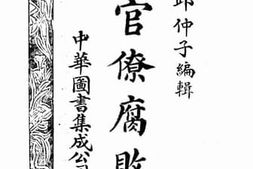 邱仲子編輯
官僚腐敗
中華圖書集成公司